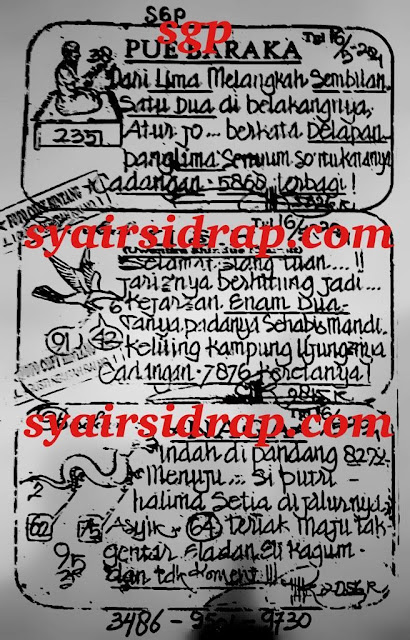 SGP
sgp
PUE BARAKA
Tgl 16/5-204
30
Dari Lima Melangkah Sembilan.
Satu Dua di belakangnya,
2351
Atur jo... berkata Delapan
panglima: Senyum
Cadangan - 5868 terbagi!
syairsidrap.com
Tgl 16/
Selamat siang tuan....!!
Jarinya berhitung jadi...
Kejarzan Enam Dua-
6
Tanya padanya Sehabis mandi.
91 42
Keliling Kampung Ujungnya
Cadangan-7876 Keretanya!
2845 R
syairsidrap.com
16/
indah di pandang 8272-
Menuju... Si putri -
2
halima Setia di jalurnya
62 75 Asyik 64 teriak maju tak-
95
gentar Eladan Eli Kagum -
dan tak Koment!!!
2056 R
3486 - - 9730